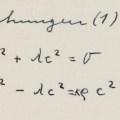 hungen (1)
² + λc² = 0
² - λc² = κρ c²